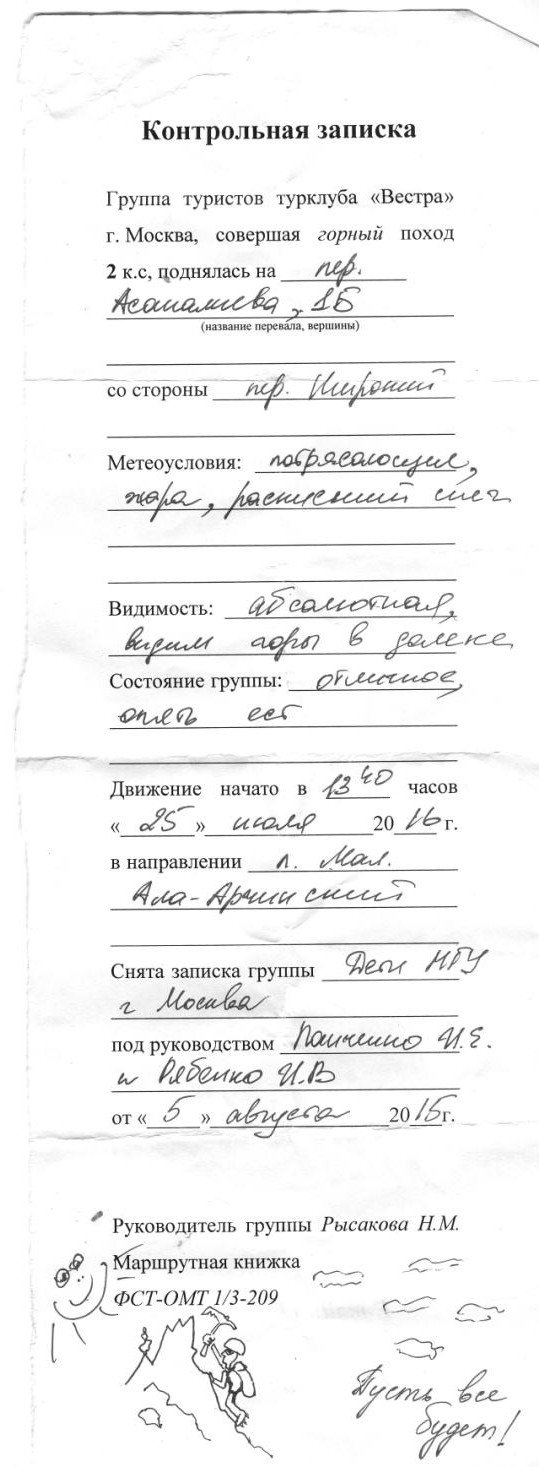 Контрольная записка
Группа туристов турклуба «Вестра»
г. Москва, совершая горный поход
2 к.с, поднялась на пер.
Асаналиева, 1Б
(название перевала, вершины)
со стороны пер. Широкий
Метеоусловия: потрясающие,
жара, раскисший снег
Видимость: абсолютная,
видим горы в далеке
Состояние группы: отличное,
опять ест
Движение начато в 13 40 часов
«25» июля 2016 г.
в направлении л. Мал.
Ала-Арчинский
Снята записка группы Дети МГУ
г Москва
под руководством Панченко И.Е.
и Рябенко И.В
от «5» августа 2015г.
Руководитель группы Рысакова Н.М.
Маршрутная книжка
ФСТ-ОМТ 1/3-209
Пусть все
будет!